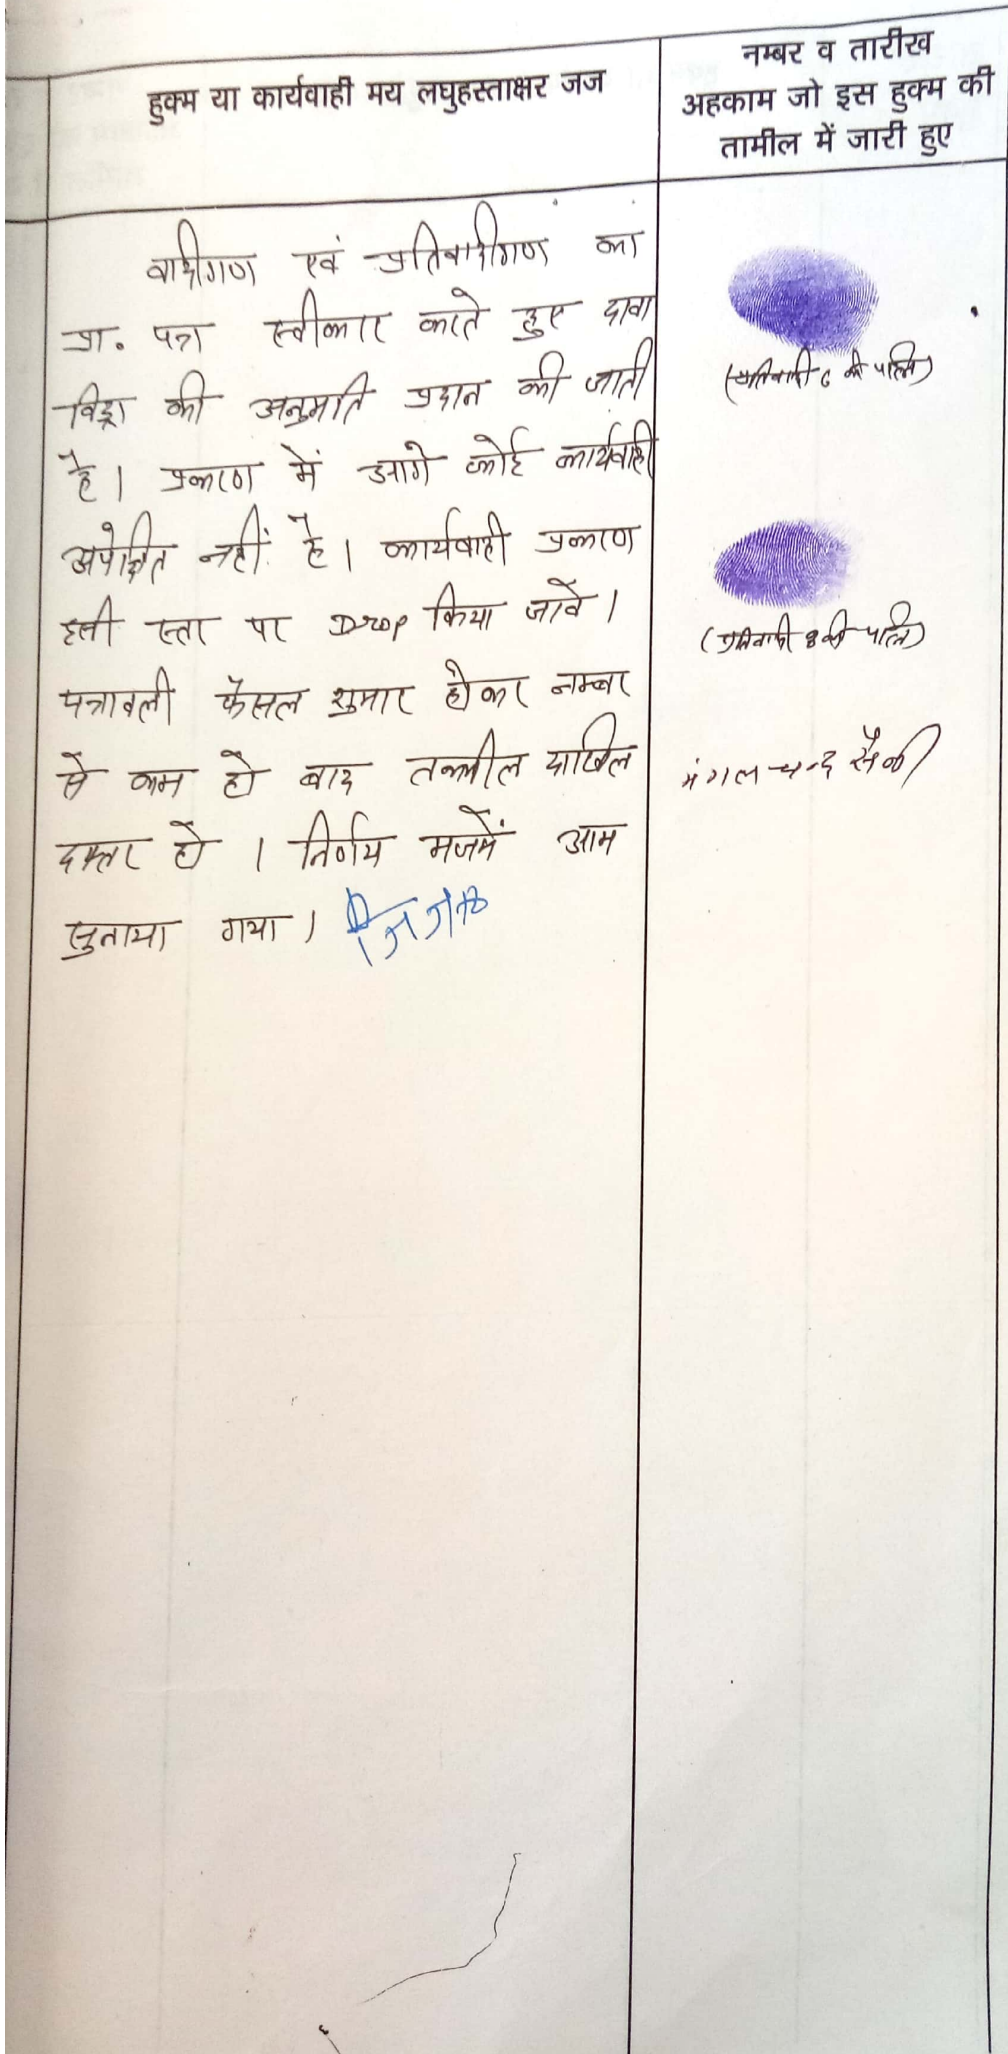 हुक्म या कार्यवाही मय लघुहस्ताक्षर जज
नम्बर व तारीख
अहकाम जो इस हुक्म की
तामील में जारी हुए
वादीगण एवं प्रतिवादीगण का
प्रा. पत्र स्वीकार करते हुए दावा
विड्रा की अनुमति प्रदान की जाती
है। प्रकरण में आगे कोई कार्यवाही
अपेक्षित नहीं है। कार्यवाही प्रकरण
इसी स्तर पर Drop किया जावे।
पत्रावली फैसल शुमार होकर नम्बर
से कम हो बाद तकमील दाखिल
दफ्तर हो । निर्णय मजमें आम
सुनाया गया।
(प्रतिवादी 6 की पत्नि)
(प्रतिवादी 8 की पत्नि)
मंगल चन्द सैनी